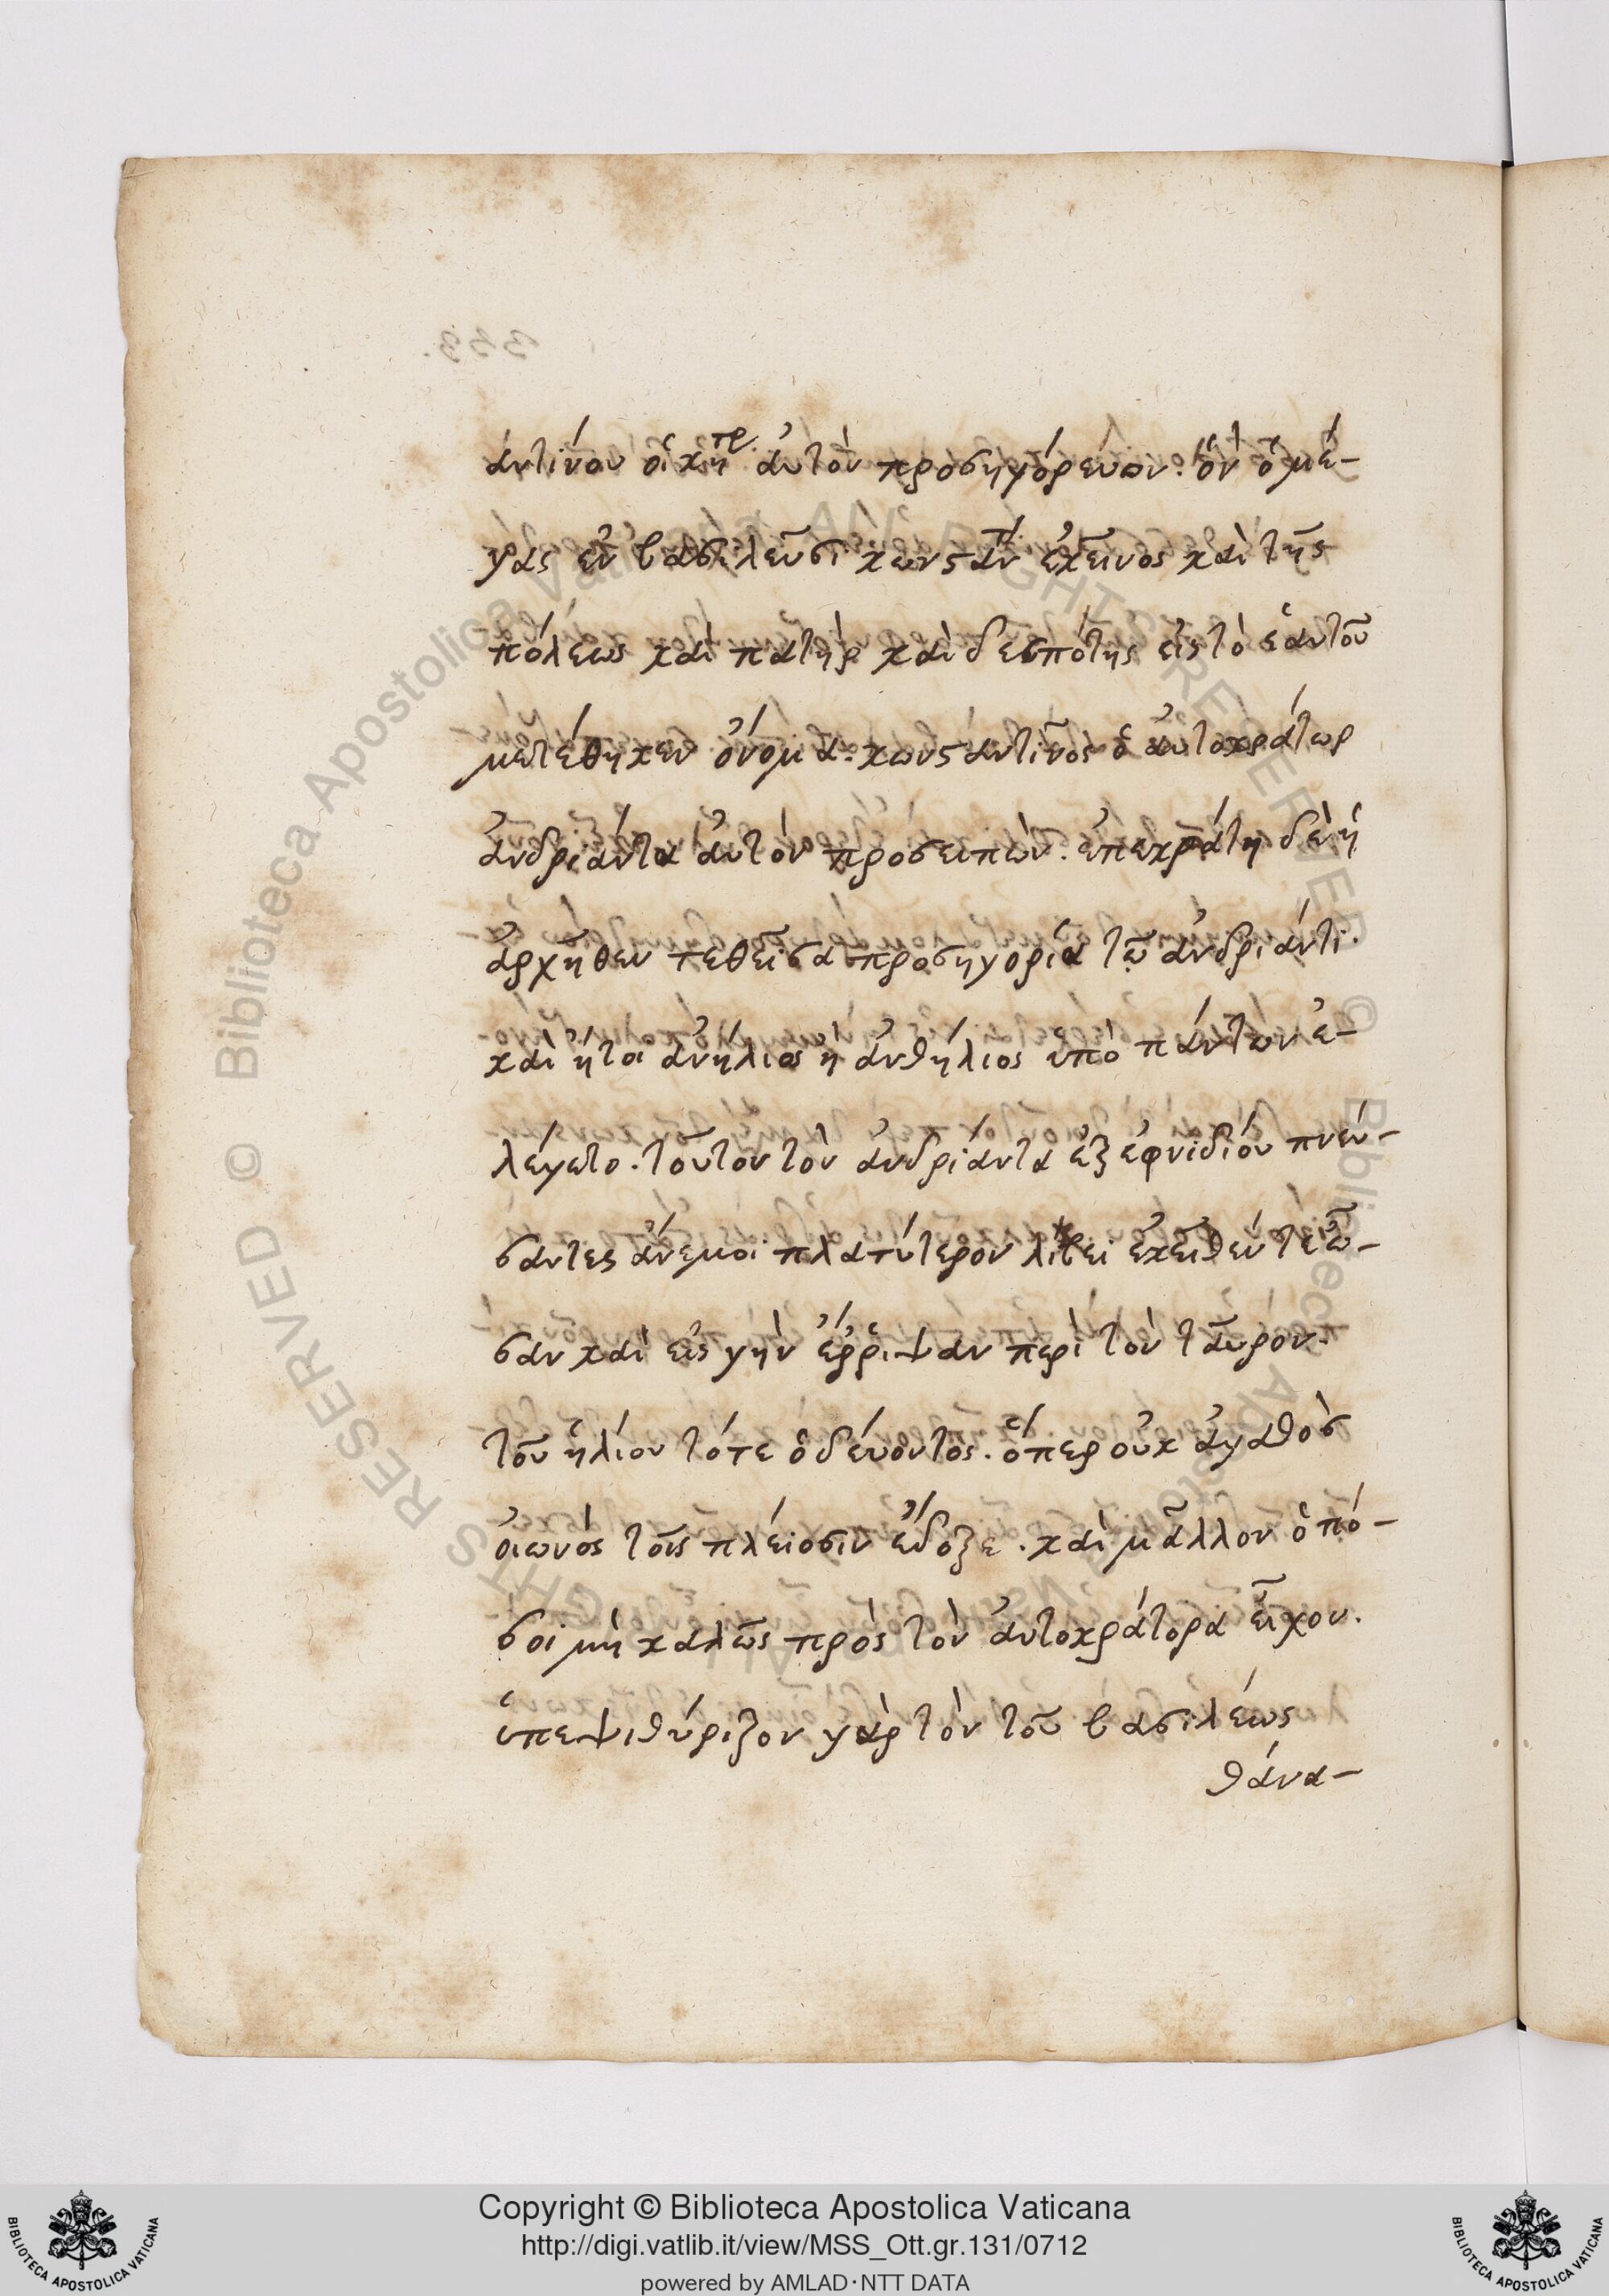 ἀντίνου οἰκήτρ αὐτὸν προσηγόρευον. ὃν ὁ μέ-
γας ἐν βασιλεῦσι κωνσταντ ἐκεῖνος καὶ τῆς
πόλεως καὶ πατὴρ καὶ δεσπότης εἰς τὸ ἑαυτοῦ
μετέθηκεν ὄνομα· κωνσταντῖνος ὁ αὐτοκράτωρ
ἀνδριάντα αὐτὸν προσειπών. ἐπεκράτη δὲ ἡ
ἀρχῆθεν τεθεῖσα προσηγορία τῷ ἀνδριάντι.
καὶ ἤτοι ἀνήλιος ἢ ἀνθήλιος ὑπὸ πάντων ἐ-
λέγετο. τοῦτον τὸν ἀνδριάντα ἐξ ἐφνιδίου πνεύ-
σαντες ἄνεμοι πλατύτερον ἐκεῖθεν τε ὦ-
σαν καὶ εἰς γὴν ἔῤῥιψαν περὶ τὸν ταῦρον.
τοῦ ἡλίου τότε ὁδεύοντος. ὅπερ οὐκ ἀγαθὸσ
οἰωνὸς τοῖς πλείοσιν ἔδοξε. καὶ μᾶλλον ὁπό-
σοι μὴ καλῶς πρὸς τὸν αὐτοκράτορα εἶχον.
ὑπεψιθύριζον γὰρ τὸν τοῦ βασιλέως
θάνα-
333.
Copyright © Biblioteca Apostolica Vaticana
http://digi.vatlib.it/view/MSS_Ott.gr.131/0712
powered by AMLAD·NTT DATA
BIBLIOTECA APOSTOLICA VATICANA
BIBLIOTECA APOSTOLICA VATICANA